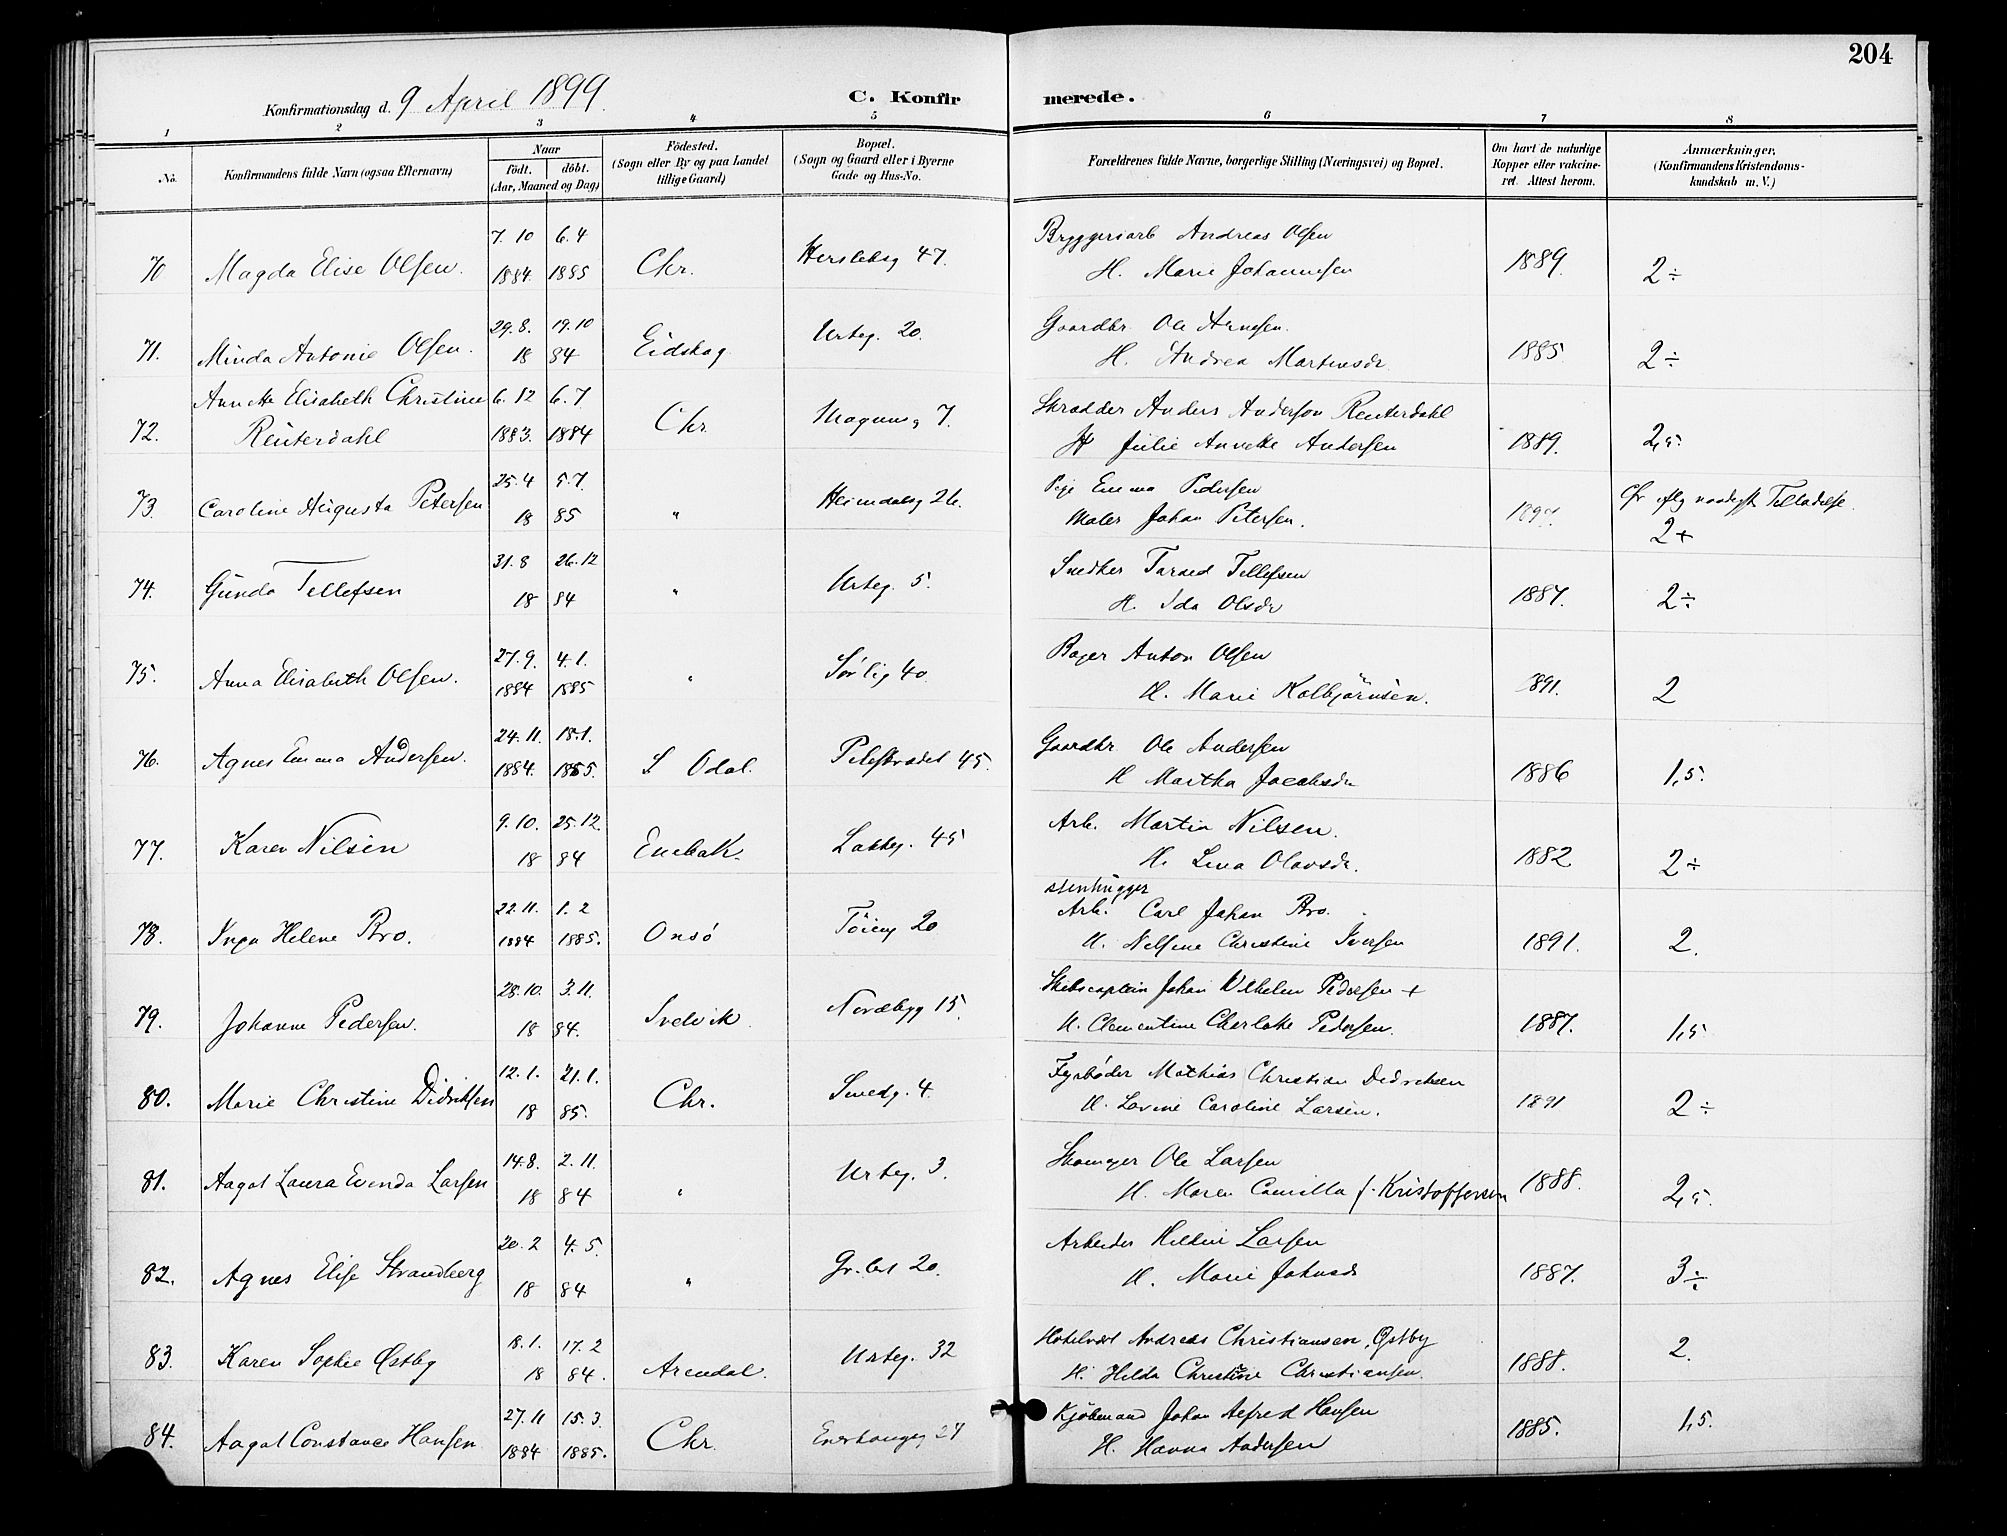 204
Konfirmationsdag d. 9 April 1899.
C. Konfirmerede.
1 2 3 4 5 6 7 8
No. Konfirmandens fulde Navn (ogsaa Efternavn) Naar födt. döbt. (Aar, Maaned og Dag) Födested. (Sogn eller By og paa Landet tillige Gaard) Bopæl. (Sogn og Gaard eller i Byerne Gade og Hus-No. Forældrenes fulde Navne, borgerlige Stilling (Næringsvei) og Bopæl. Om havt de naturlige Kopper eller vakcineret. Attest herom. Anmærkninger. (Konfirmandens Kristendomskundskab m. V.)
7. 10 6. 4 Bryggeriarb Andreas Olsen
70 Magda Elise Olsen. 1884. 1885 Chr. Herslebsg 47. H. Marie Johannesen 1889. 2÷
29. 8. 19. 10 Gaardbr. Ole Arnesen.
71. Minda Antonie Olsen. 18 84 Eidskog Urteg. 20. H. Andrea Martinsdr 1885 2÷
Annette Elisabeth Christine 6. 12 6. 7 Skrædder Anders Anderson Reuterdahl
72. Reüterdahl 1883. 1884 Chr. Magnusg 7. H Julie Annette Andersen 1889. 2,5.
25. 4 5. 7. Pige Emma Pedersen
73. Caroline Augusta Petersen 18 85 " Heimdalsg 26. Maler Johan Petersen. 2+
31. 8 26. 12 Snedker Tarald Tellefsen
74. Gunda Tellefsen 18 84 " Urteg. 5. H. Ida Olsdr 1887. 2÷
27. 9. 4. 1. Bager Anton Olsen
75. Anna Elisabeth Olsen. 1884 1885 " Sørlig 40 H. Marie Kolbjörnsen. 1891. 2
24. 11. 18. 1. Gaardbr Ole Andersen
76. Agnes Emma Andersen. 1884. 1885. S Odal. Pilestrædet 45. H Martha Jacobsdr 1886 1,5.
9. 10. 25. 12. Arb. Martin Nilsen.
77. Karen Nilsen 18 84 Enebak. Lakkeg. 45 H. Lina Olavsdr. 1882 2÷
Stenhugger
22. 11. 1. 2 Arb. Carl Johan Bro.
78. Inga Helene Bro. 1884 1885. Onsö Töieng 20 H. Nilsine Christine Iversen 1891. 2.
28. 10. 3. 11. Skibscaptein Johan Wilhelm Pedersen +
79. Johanne Pedersen. 18 84. Svelvik Nordbyg 15. H. Clementine Charlotte Pedersen. 1887. 1,5
12. 1. 21. 1. Fyrböder Mathias Christian Didriksen
80. Marie Christine Didriksen 18 85. Chr. Smedg. 4. H. Lovine Caroline Larsen. 1891 2÷
14. 8. 2. 11. Skomager Ole Larsen
81. Aagot Laura Evinda Larsen 18 84 " Urteg. 3. H. Maren Camilla f. Kristoffersen 1888. 2,5.
20. 2 4. 5. Arbeider Larsen
82. Agnes Elise Strandberg 18 84 " Gr.let 20. H. Marie Johnsdr 1887. 3÷
18. 1. 17. 2 Hotelvært Andreas Christiansen, Østby
83. Karen Sophie Østby 18 84. Arendal. Urteg. 32 H. Hilda Christine Christiansen. 1888. 2.
27. 11 15. 3. Kjöbmand Johan Alfred Hansen
84. Aagot Constance Hansen. 1884 1885. Chr. Enerhaugg 27 H. Hanna Andersen 1885. 1,5.